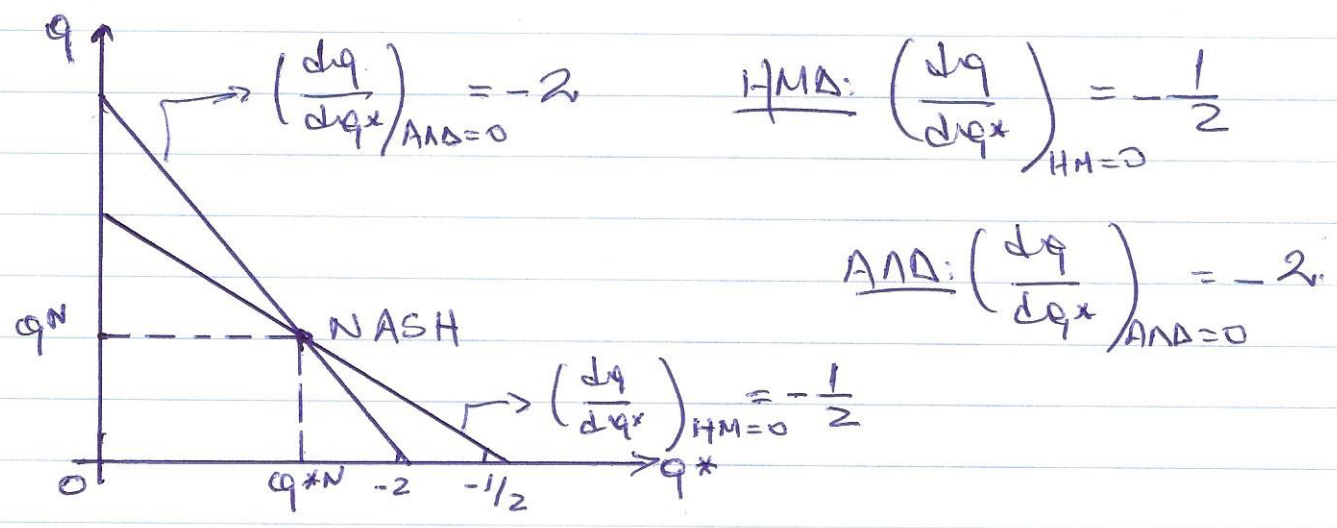 q
(dq/dq*)ΑΛΔ=0 = -2
ΗΜΔ: (dq/dq*)ΗΜ=0 = -1/2
ΑΛΔ: (dq/dq*)ΑΛΔ=0 = -2.
qN
NASH
(dq/dq*)ΗΜ=0 = -1/2
0 q*N -2 -1/2 q*